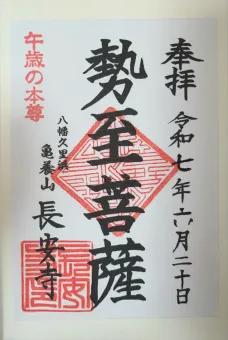 奉拝
令和七年六月二十日
勢至菩薩
八幡久里浜
亀養山
長安寺
午歳の本尊